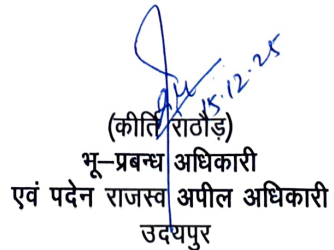 15.12.25
(कीर्ति राठौड़)
भू–प्रबन्ध अधिकारी
एवं पदेन राजस्व अपील अधिकारी
उदयपुर